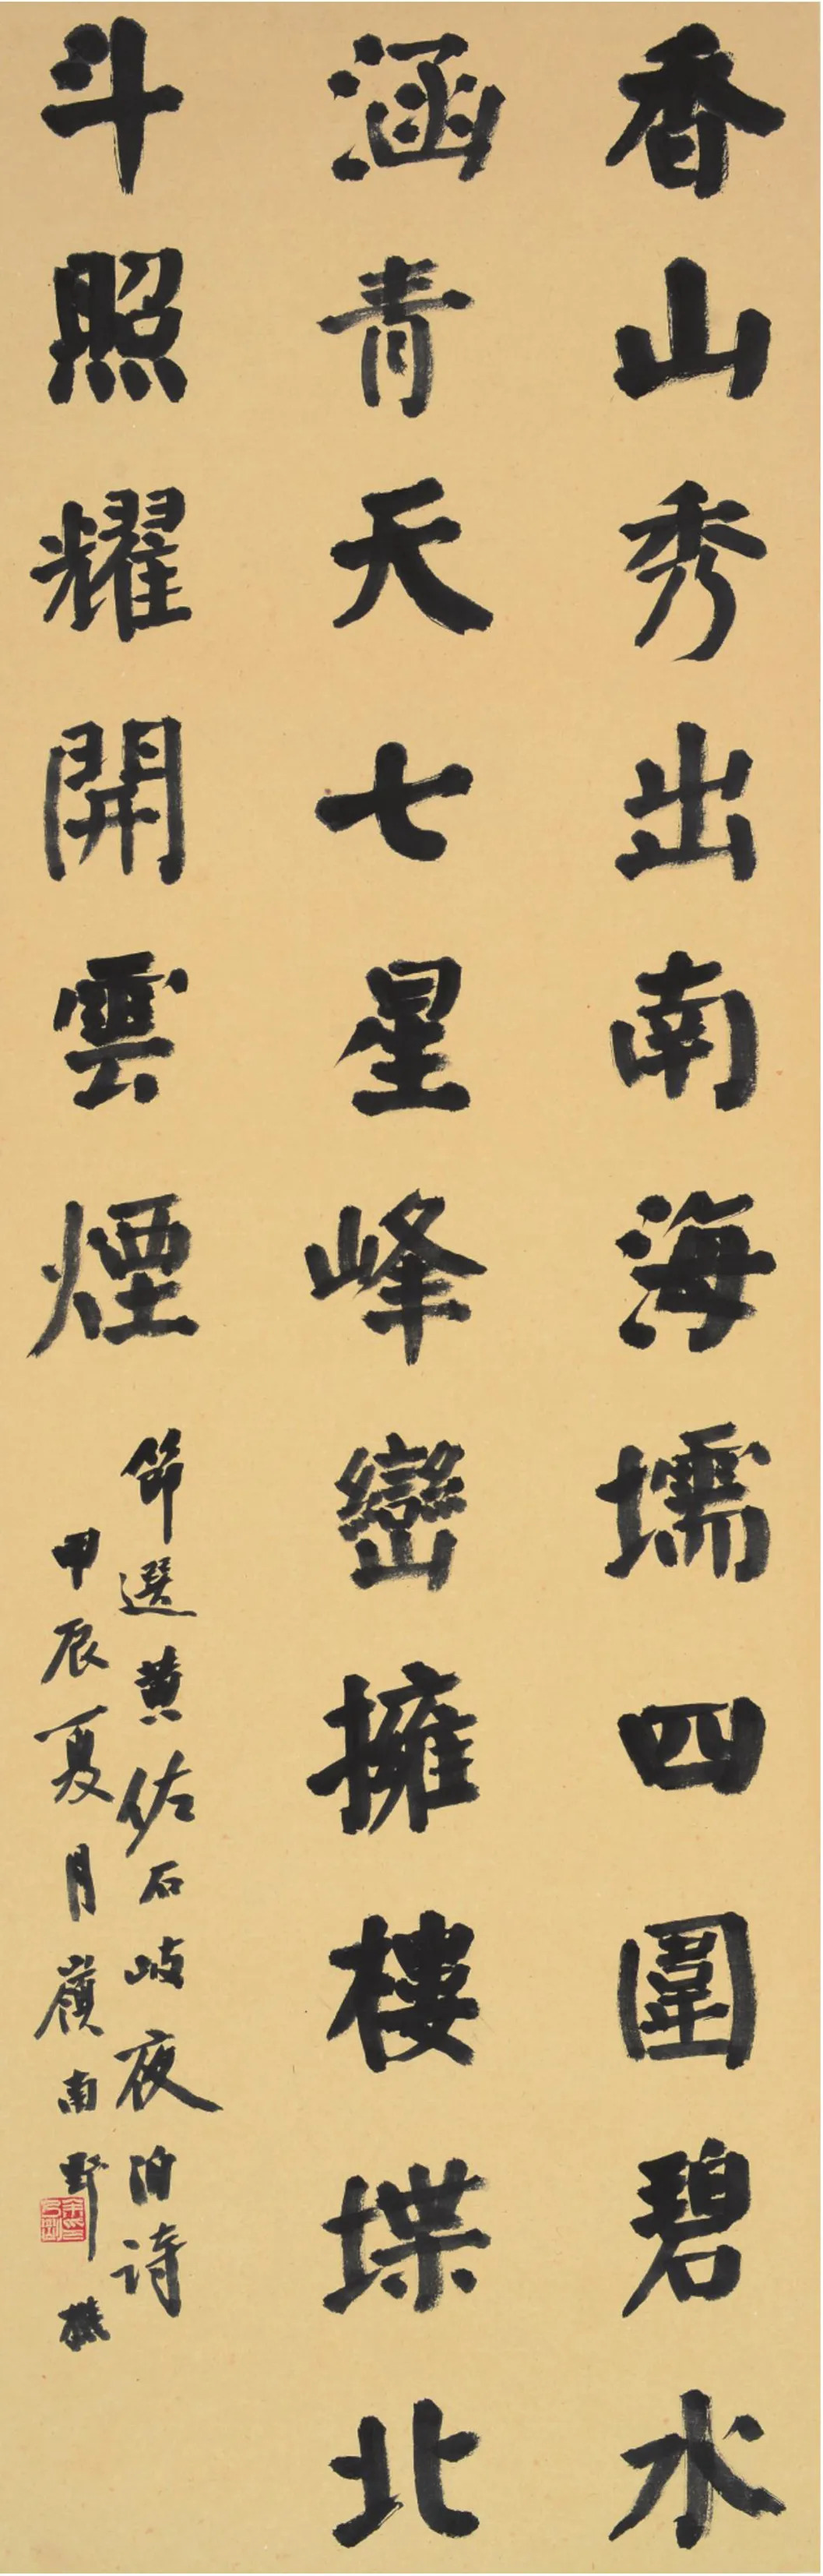 香山秀出南海壖四圍碧水
涵青天七星峰巒擁樓堞北
斗照耀開雲煙
節選黄佐石岐夜泊詩
甲辰夏月嶺南野樵